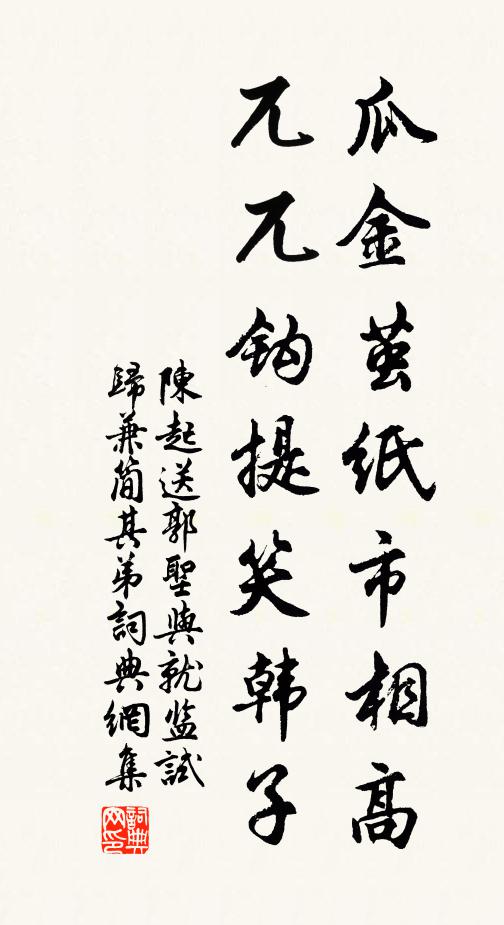 瓜金茧纸市相高
兀兀钩提笑韩子
陳起送郭聖與就监試
歸兼简其弟詞典網集
詞典网印